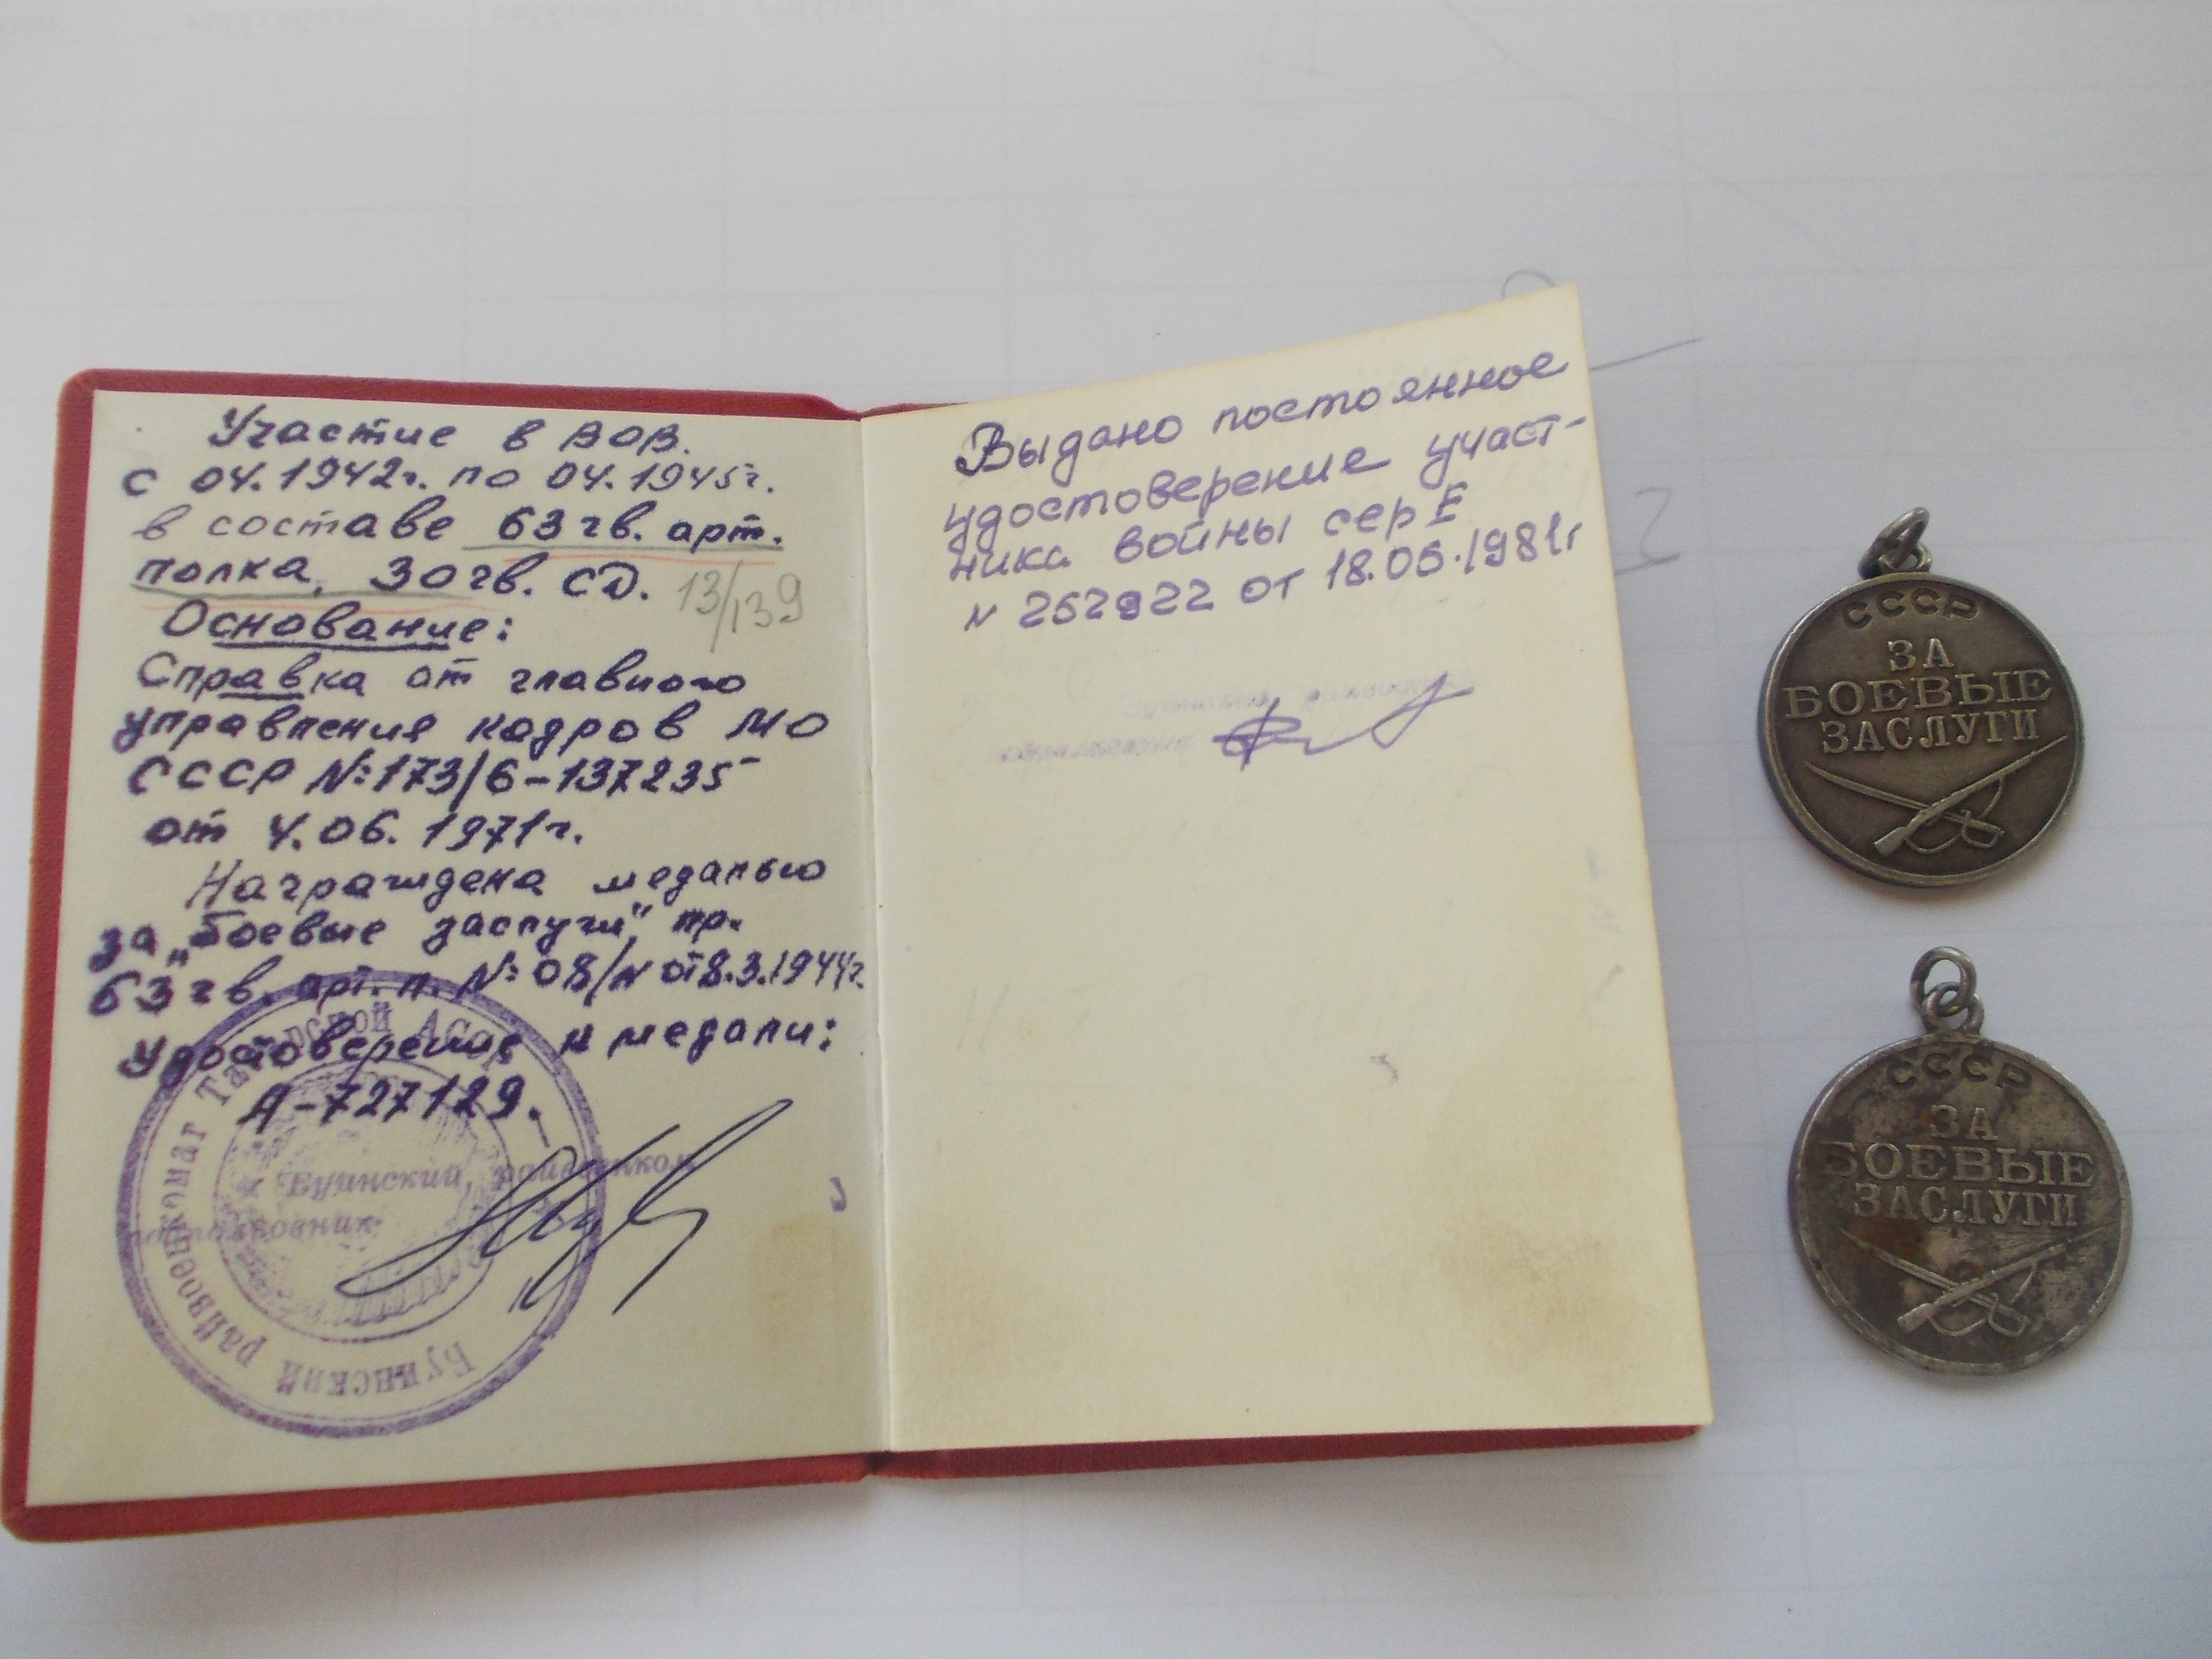 Участие в ВОВ.
с 04.1942г. по 04.1945г.
в составе 63 гв. арт.
полка, 30 гв. СД.
13/139
Основание:
Справка от главного
управления кадров МО
СССР №173/6-137235
от 4.06.1971г.
Награждена медалью
за „Боевые заслуги", пр.
63 гв. арт. п. №08/н от 8.3.1944г.
Удостоверение к медали:
А-727129.
Буинский райвоенком
подполковник
Буинский райвоенкомат Татарской АССР
Выдано постоянное
удостоверение участ-
ника войны сер Е
N 252922 от 18.06.1981г
СССР
ЗА
БОЕВЫЕ
ЗАСЛУГИ
СССР
ЗА
БОЕВЫЕ
ЗАСЛУГИ